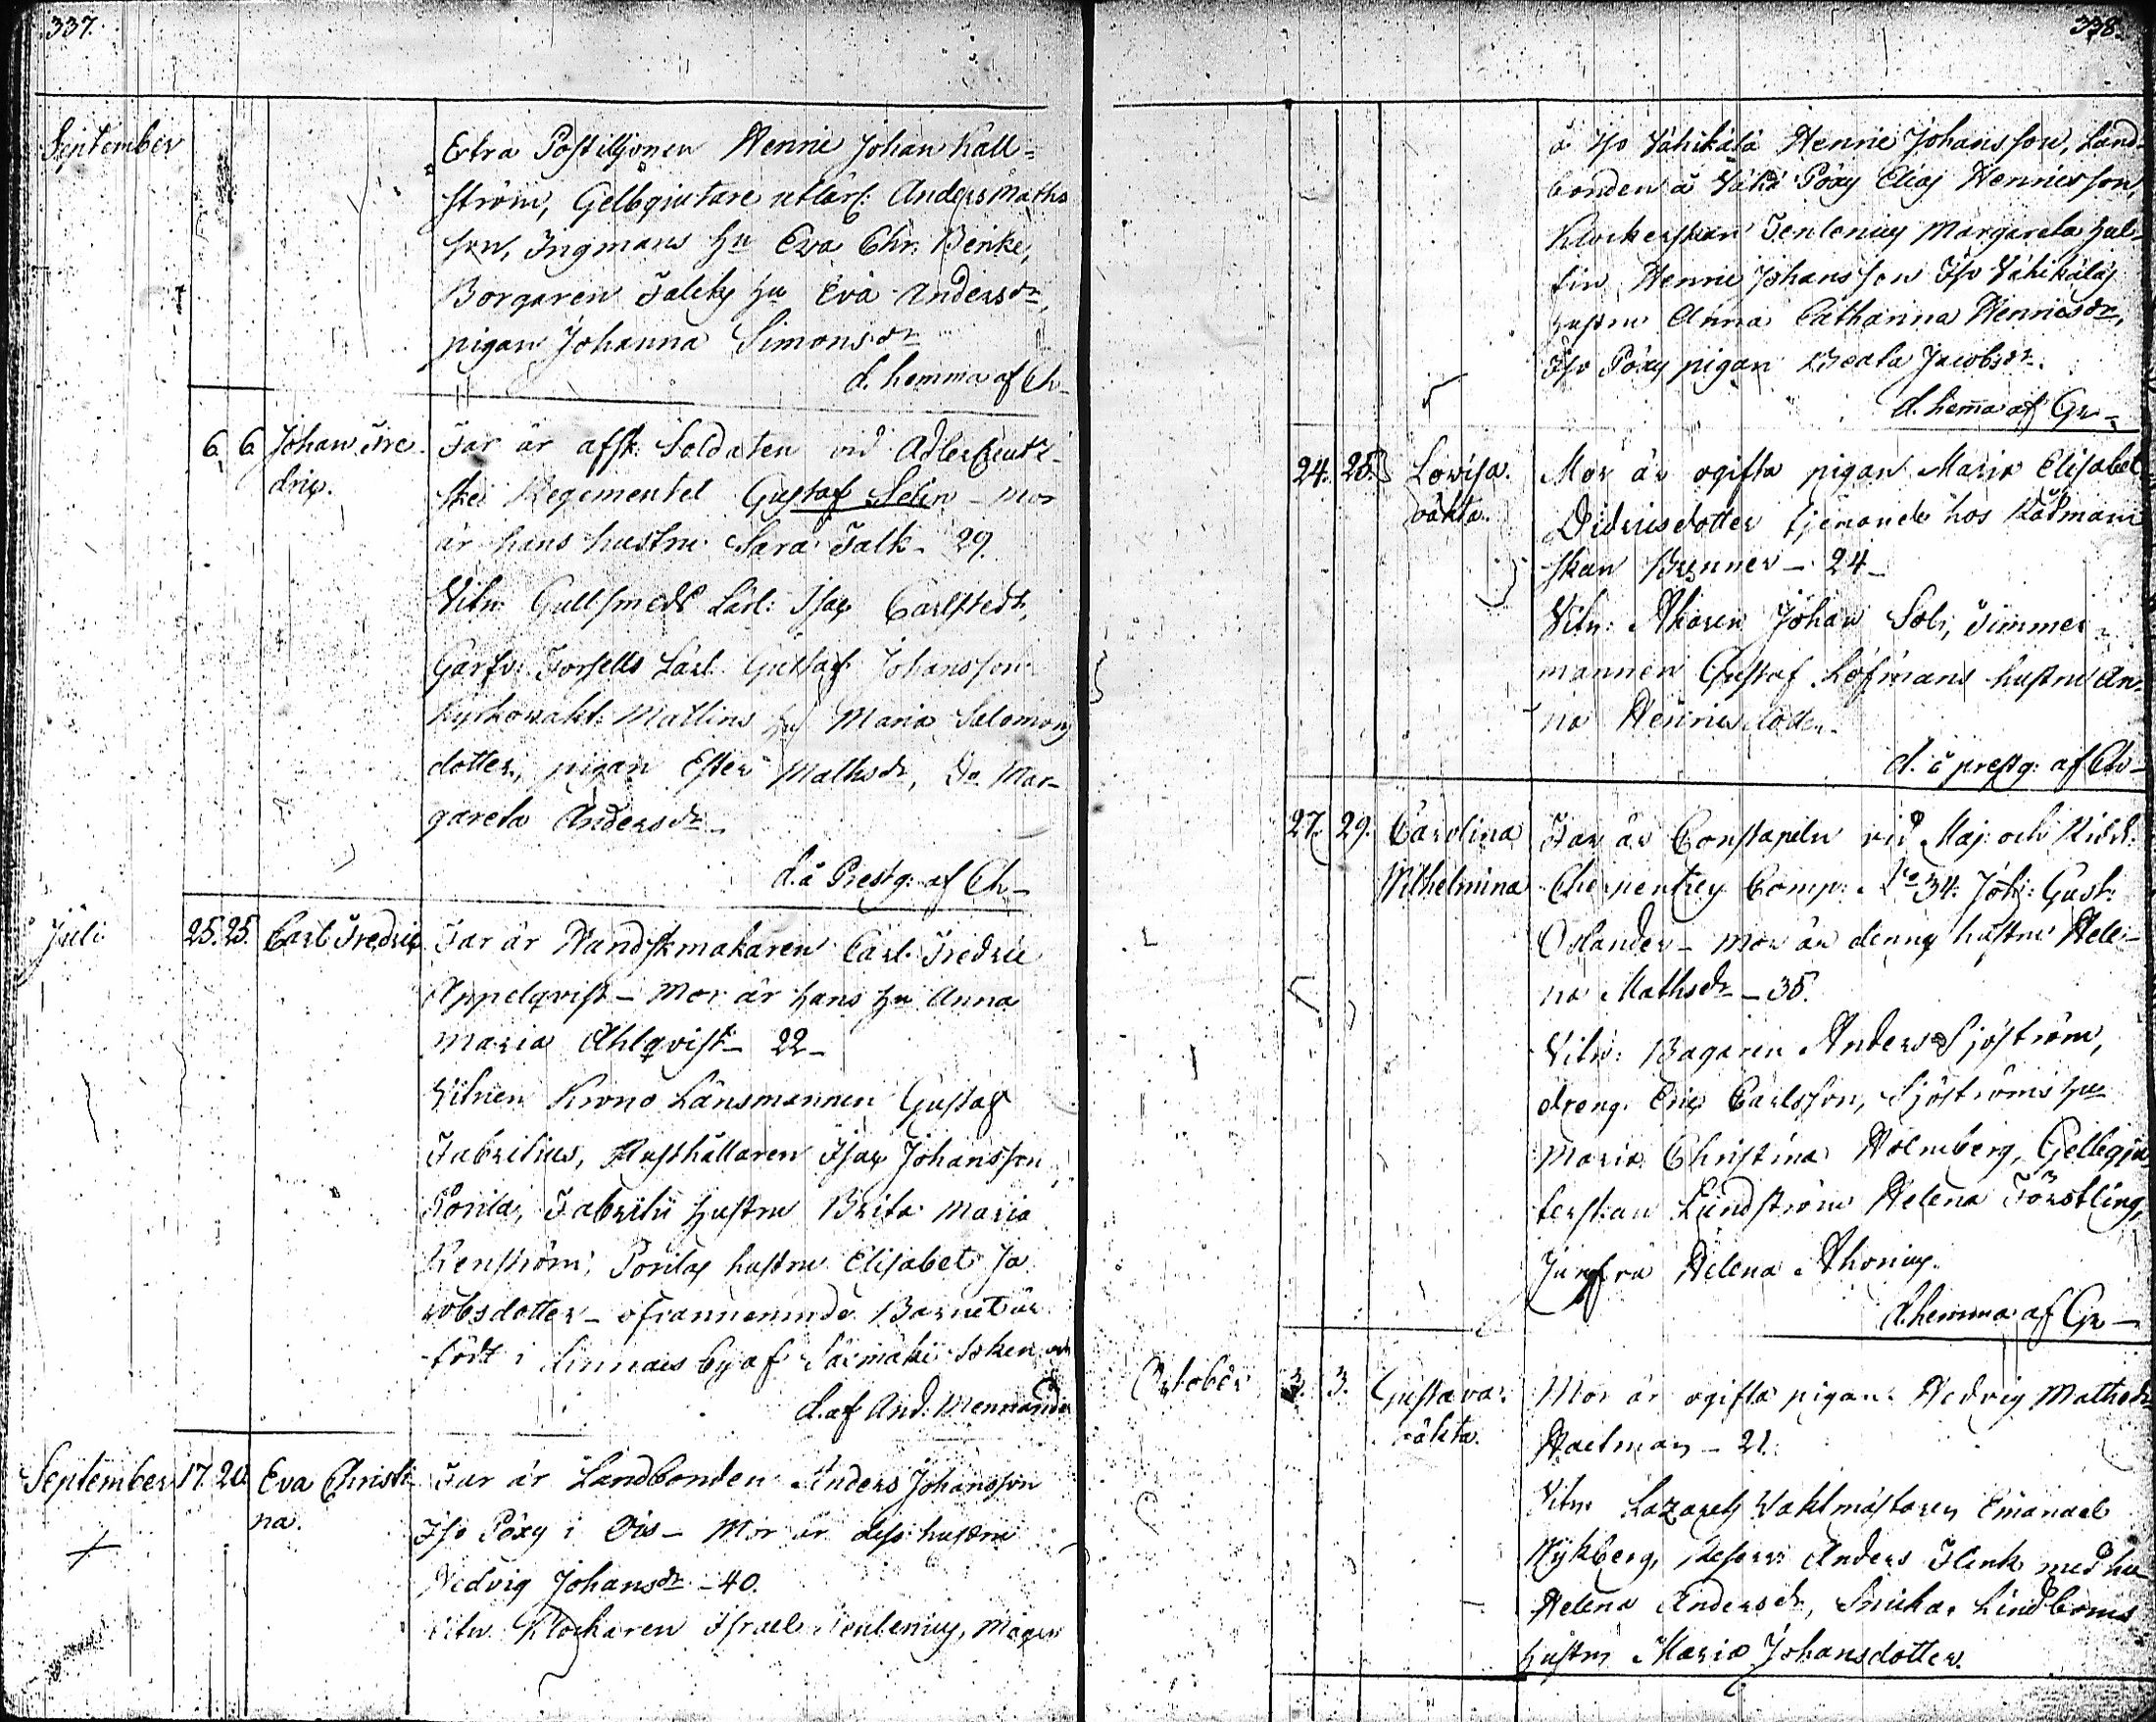 337.
September
Extra Postiljonen Henric Johan Käll=
ström, Gelbgjutare utlärl: Anders Maths
son, Ingmans hu Eva Chr. Benke,
Borgaren Falcks hu Eva Andersdr,
pigan Johanna Simonsdr
d. hemma af Ch-
6. 6. Johan Fre
dric.
Far är afsk. Soldaten vid Adlercreutz-
ska Regementet Gustaf Selin - mor
är hans hustru Sara Falk - 29.
Vitn: Gullsmeds Lärl: Isac Carlstedt,
Garfv: Forsells Lärl. Gustaf Johansson
Kyrkovakt: Mallins hu Maria Salomons
dotter, pigan Ester Mathsdr, Do Mar-
gareta Andersdr-
d. å Prestg: af Ch-
Juli
25. 25. Carl Fredric
Far är Handskmakaren Carl Fredric
Appelqvist - Mor är hans hu Anna
Maria Ahlqvist - 22 -
Vitnen Krono Länsmannen Gustaf
Fabritius, Rusthållaren Isac Johansson
Porila, Fabritii hustru Brita Maria
Renström, Porilas hustru Elisabet Ja
cobsdotter - ofvannemnde Barnet är
födt i Annais by af Säkmäki Soken och
d. af And: Mennander
September 17. 20. Eva Christi-
na.
Far är Landbonden Anders Johansson
Iso Pöxy i Ois - Mor är dess hustru
Hedvig Johansdr - 40.
Vitn: Klockaren Israel Tenlenius, Mågen
338.
å Iso Vähikälä Henric Johansson, Land-
bonden å Vähä Pöxy Elias Henricsson,
Klockerskan Tenlenius Margareta Hal-
lin, Henric Johansson Iso Vähikäläs
hustru Anna Catharina Henricsdr,
Iso Pöxy pigan Beata Jacobsdr.
d. hemma af Gr-
24. 25. Lovisa.
oäkta.
Mor är ogifta pigan Maria Elisabet
Didricsdotter tjenande hos Rådmann
skan Brenner - 24 -
Vitn: Åkaren Johan Sol, Timmer-
mannen Gustaf Löfmans hustru An-
na Henricsdotter.
d. å prestg: af Ch-
27. 29. Carolina
Wilhelmina
Far är Constapeln vid Maj: och Ridd:
Charpentiers Comp: No 34: Joh: Gust:
Oslander - mor är dennes hustru Hele-
na Mathsdr - 35.
Vitn: Bagaren Anders Sjöström,
dreng: Eric Carlsson, Sjöströms hu
Maria Christina Holmberg, Gelbgju
terskan Lundström Helena Förstling,
Jungfru Helena Ahonius.
d. hemma af Gr-
October 3. 3. Gustava.
oäkta.
Mor är ogifta pigan Hedvig Mathsdr
Hartman - 21.
Vitn: Lazarets Vaktmästaren Emanuel
Nykberg, Reserv: Anders Flink med hu
Helena Andersdr, Snickar Lindboms
hustru Maria Johansdotter.